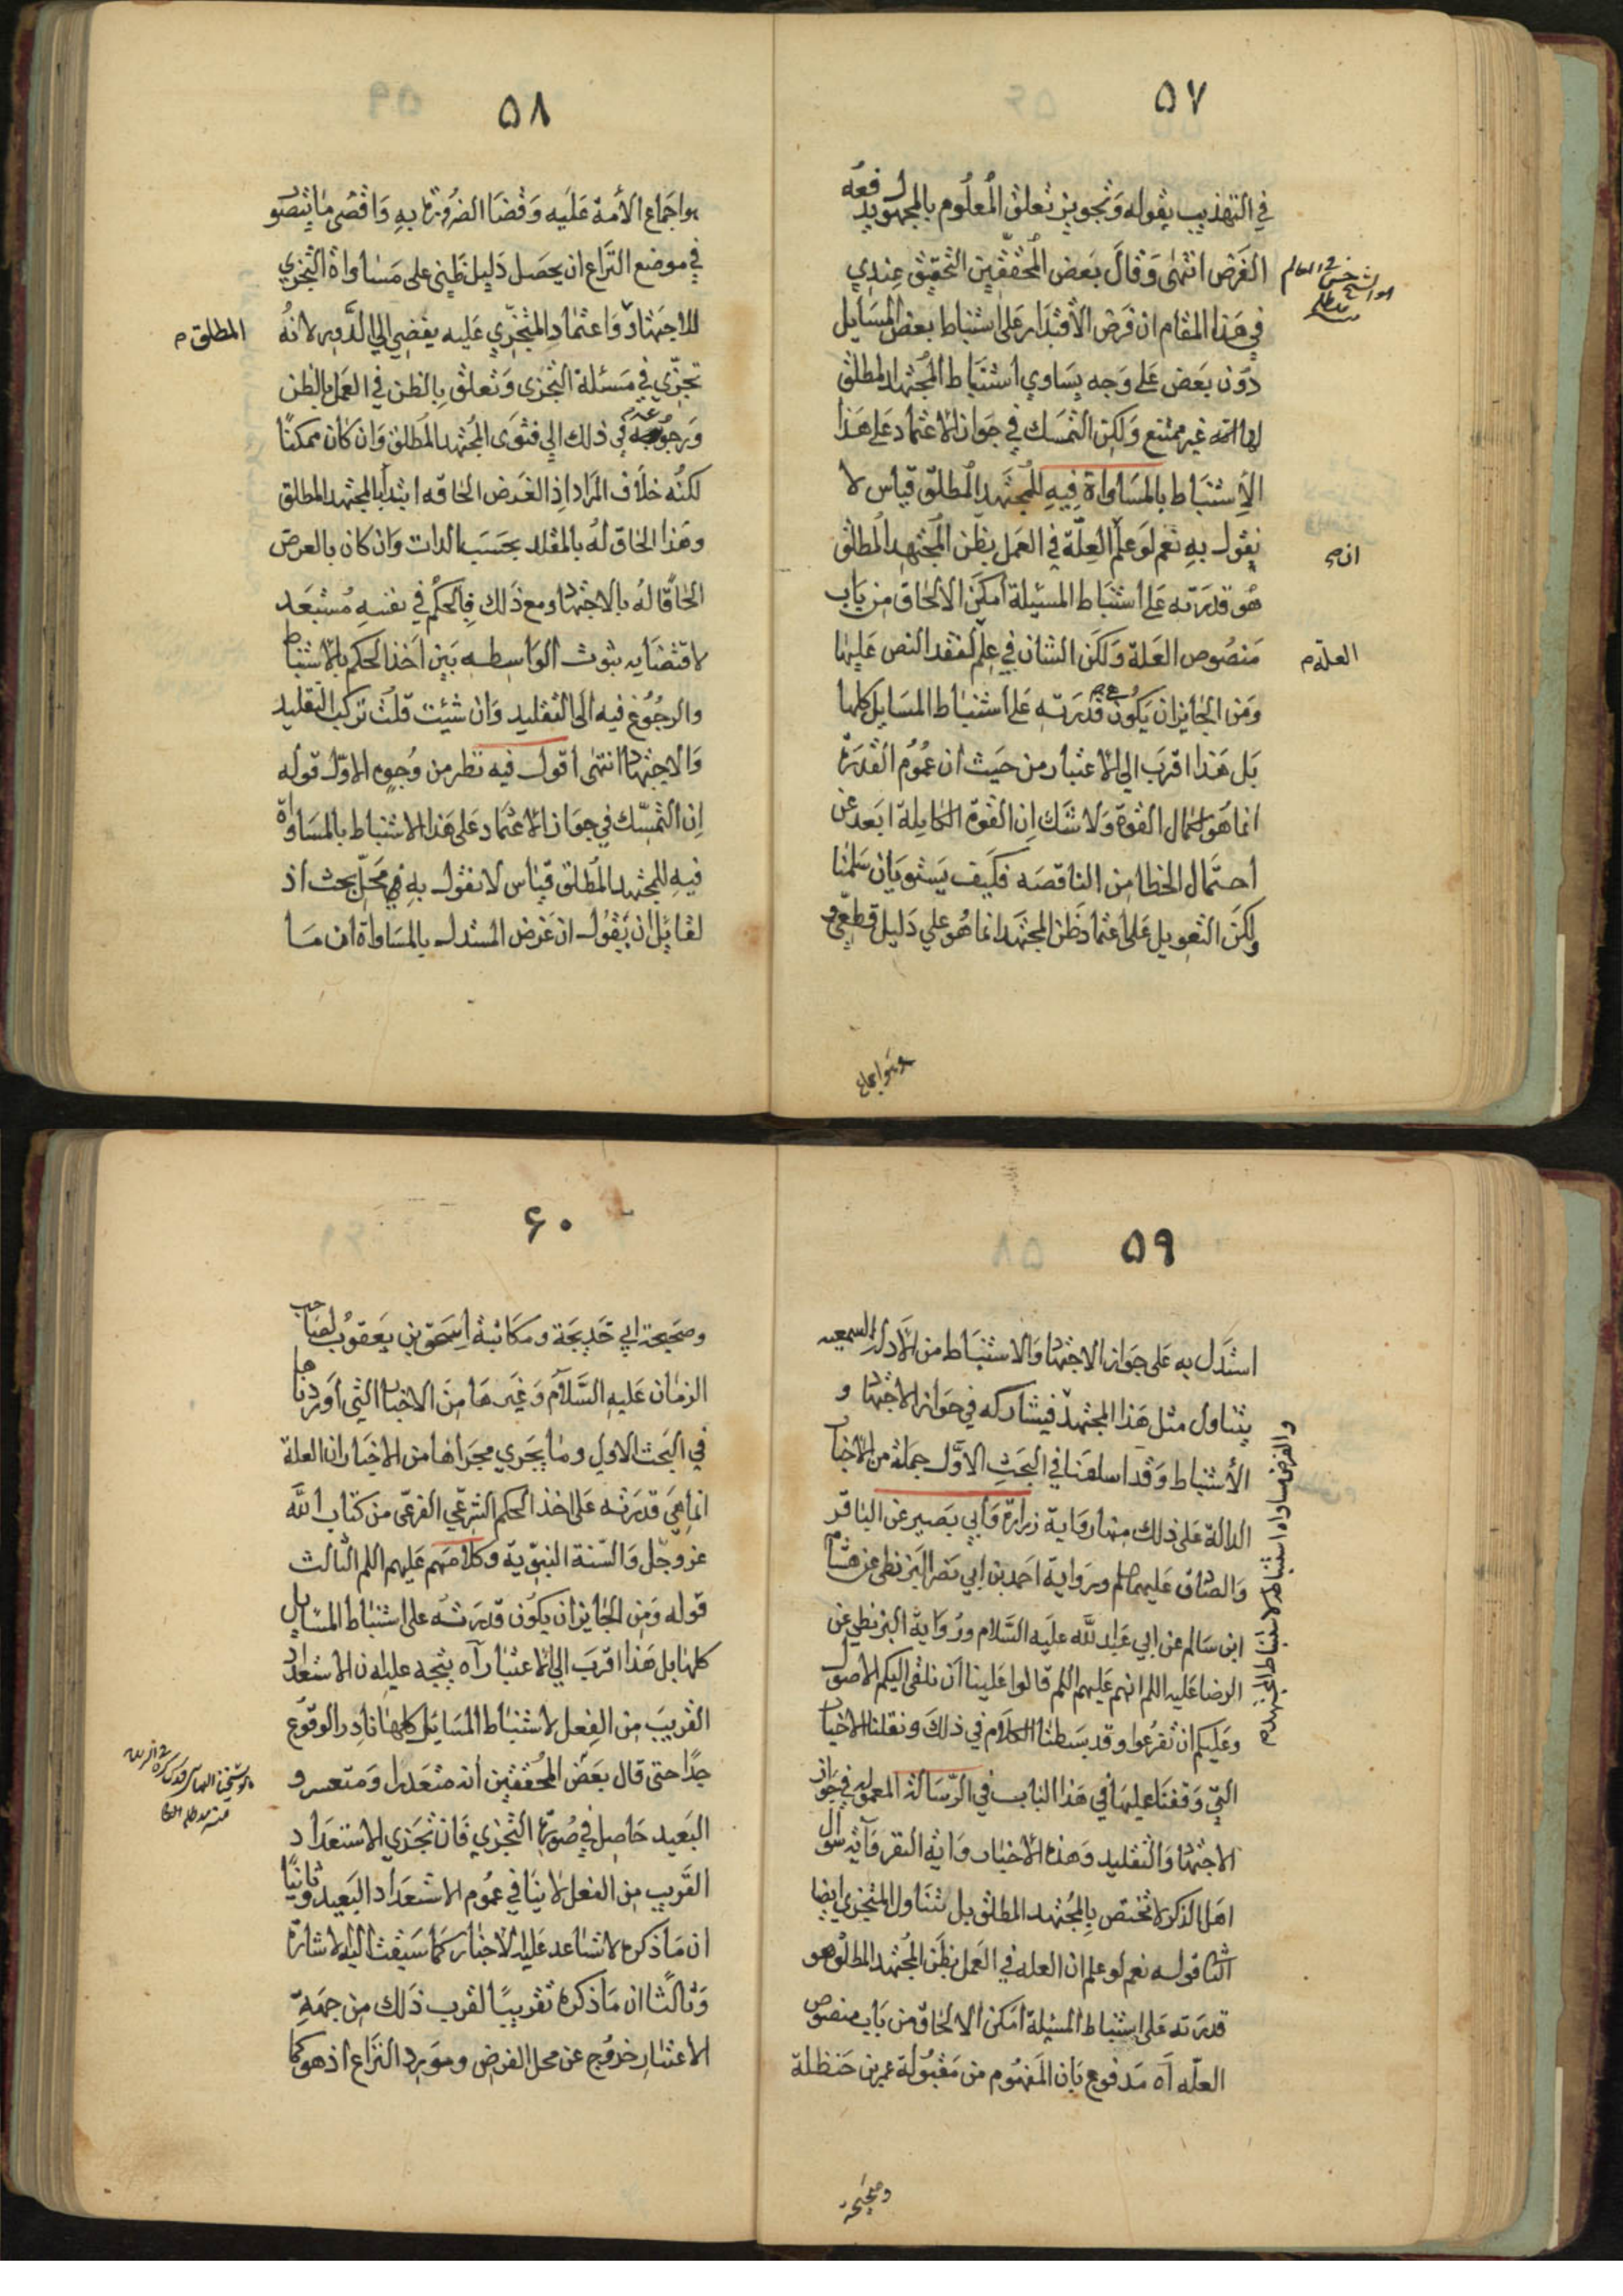 ٥٧
في التهذيب بقوله وتجويز تعلق المعلوم بالمجهول يدفعه
الغرض انتهى وقال بعض المحققين التحقيق عندي
في هذا المقام ان فرض الاقتدار على استنباط بعض المسايل
دون بعض على وجه يساوي استنباط المجتهد المطلق
لها غير ممتنع ولكن التمسك في جواز الاعتماد على هذا
الاستنباط بالمساواة فيه للمجتهد المطلق قياس لا
نقول به نعم لو علم العلة في العمل بظن المجتهد المطلق
ان
هو قدرته على استنباط المسئلة امكن الالحاق من باب
منصوص العلة ولكن الشان في علم لفقد النص عليها
العلة م
ومن الجايز ان يكون قدرته على استنباط المسايل كلها
بل هذا اقرب الى الاعتبار من حيث ان عموم القدرة
انما هو لكمال القوة ولا شك ان القوة الكاملة ابعد عن
احتمال الخطا من الناقصه فكيف يستويان سلمنا
ولكن التعويل على اعتماد ظن المجتهد انما هو على دليل قطعي و
وهو اجماع
٥٨
هو اجماع الأمة عليه وقضا الضرورة به واقصى ما يتصور
في موضع النزاع ان يحصل دليل ظني على مساواة التجزي
للاجتهاد واعتماد المتجزي عليه يفضي الى الدور لانه
المطلق م
تجزي في مسئلة التجزي وتعلق بالظن في العمل بالظن
ورجوعه في ذلك الى فتوى المجتهد المطلق وان كان ممكنا
لكنه خلاف المراد اذ الغرض الحاقه ابتدأ بالمجتهد المطلق
وهذا الحاق له بالمقلد بحسب الذات وان كان بالعرض
الحاقا له بالاجتهاد ومع ذلك فالحكم في نفسه مستبعد
لاقتضايه ثبوت الواسطه بين اخذ الحكم بالاستنباط
والرجوع فيه الى التقليد وان شئت قلت تركب التقليد
والاجتهاد انتهى اقول فيه نظر من وجوه الاول قوله
ان التمسك في جواز الاعتماد على هذا الاستنباط بالمساواة
فيه للمجتهد المطلق قياس لا نقول به في محل بحث اذ
لقائل ان يقول ان غرض المستدل بالمساواة ان ما
٥٩
استدل به على جواز الاجتهاد والاستنباط من الادلة السمعيه
يتناول مثل هذا المجتهد فيشاركه في جواز الاجتهاد و
الاستنباط وقد اسلفنا في البحث الاول جملة من الاخبار
والغرض مساواة استنباطه لاستنباط المجتهد م
الدالة على ذلك منها رواية زرارة وابي بصير عن الباقر
والصادق عليهما لم ورواية احمد بن ابي نصر البزنطي عن هشام
ابن سالم عن ابي عبد الله عليه السلام ورواية البزنطي عن
الرضا عليه اللم انهم عليهم اللم قالوا علينا ان نلقى اليكم الاصول
وعليكم ان تفرعوا وقد بسطنا الكلام في ذلك ونقلنا الاخبار
التي وقفنا عليها في هذا الباب في الرسالة المعموله في جواز
الاجتهاد والتقليد وهذه الاخبار واية النفر واية سوال
اهل الذكر لا تختص بالمجتهد المطلق بل تتناول المتجزي ايضا
الثاني قوله نعم لو علم ان العله في العمل بظن المجتهد المطلق هو
قدرته على استنباط المسئلة امكن الالحاق من باب منصوص
العله آه مدفوع بان المفهوم من مقبولة عمر بن حنظلة
وصحيحة
٦٠
وصحيحة ابي خديجة ومكاتبة اسحق بن يعقوب لصاحب
الزمان عليه السلام وغيرها من الاخبار التي اوردناها
في البحث الاول وما يجري مجراها من الاخبار ان العلة
انما هي قدرته على اخذ الحكم الشرعي الفرعي من كتاب الله
عز وجل والسنة النبوية وكلامهم عليهم اللم الثالث
قوله ومن الجايز ان يكون قدرته على استنباط المسايل
كلها بل هذا اقرب الى الاعتبار آه يتجه عليه ان الاستعداد
القريب من الفعل لاستنباط المسايل كلها نادر الوقوع
جدا حتى قال بعض المحققين انه متعذر او متعسر و
البعيد حاصل في صورة التجزي فان تجزي الاستعداد
القريب من الفعل لا ينافي عموم الاستعداد البعيد وثانيا
ان ما ذكره لا تساعد عليه الاخبار كما سبقت اليه الاشارة
وثالثا ان ما ذكره تقريبا لقرب ذلك من جهة
الاعتبار خروج عن محل الفرض ومورد النزاع اذ هو كما